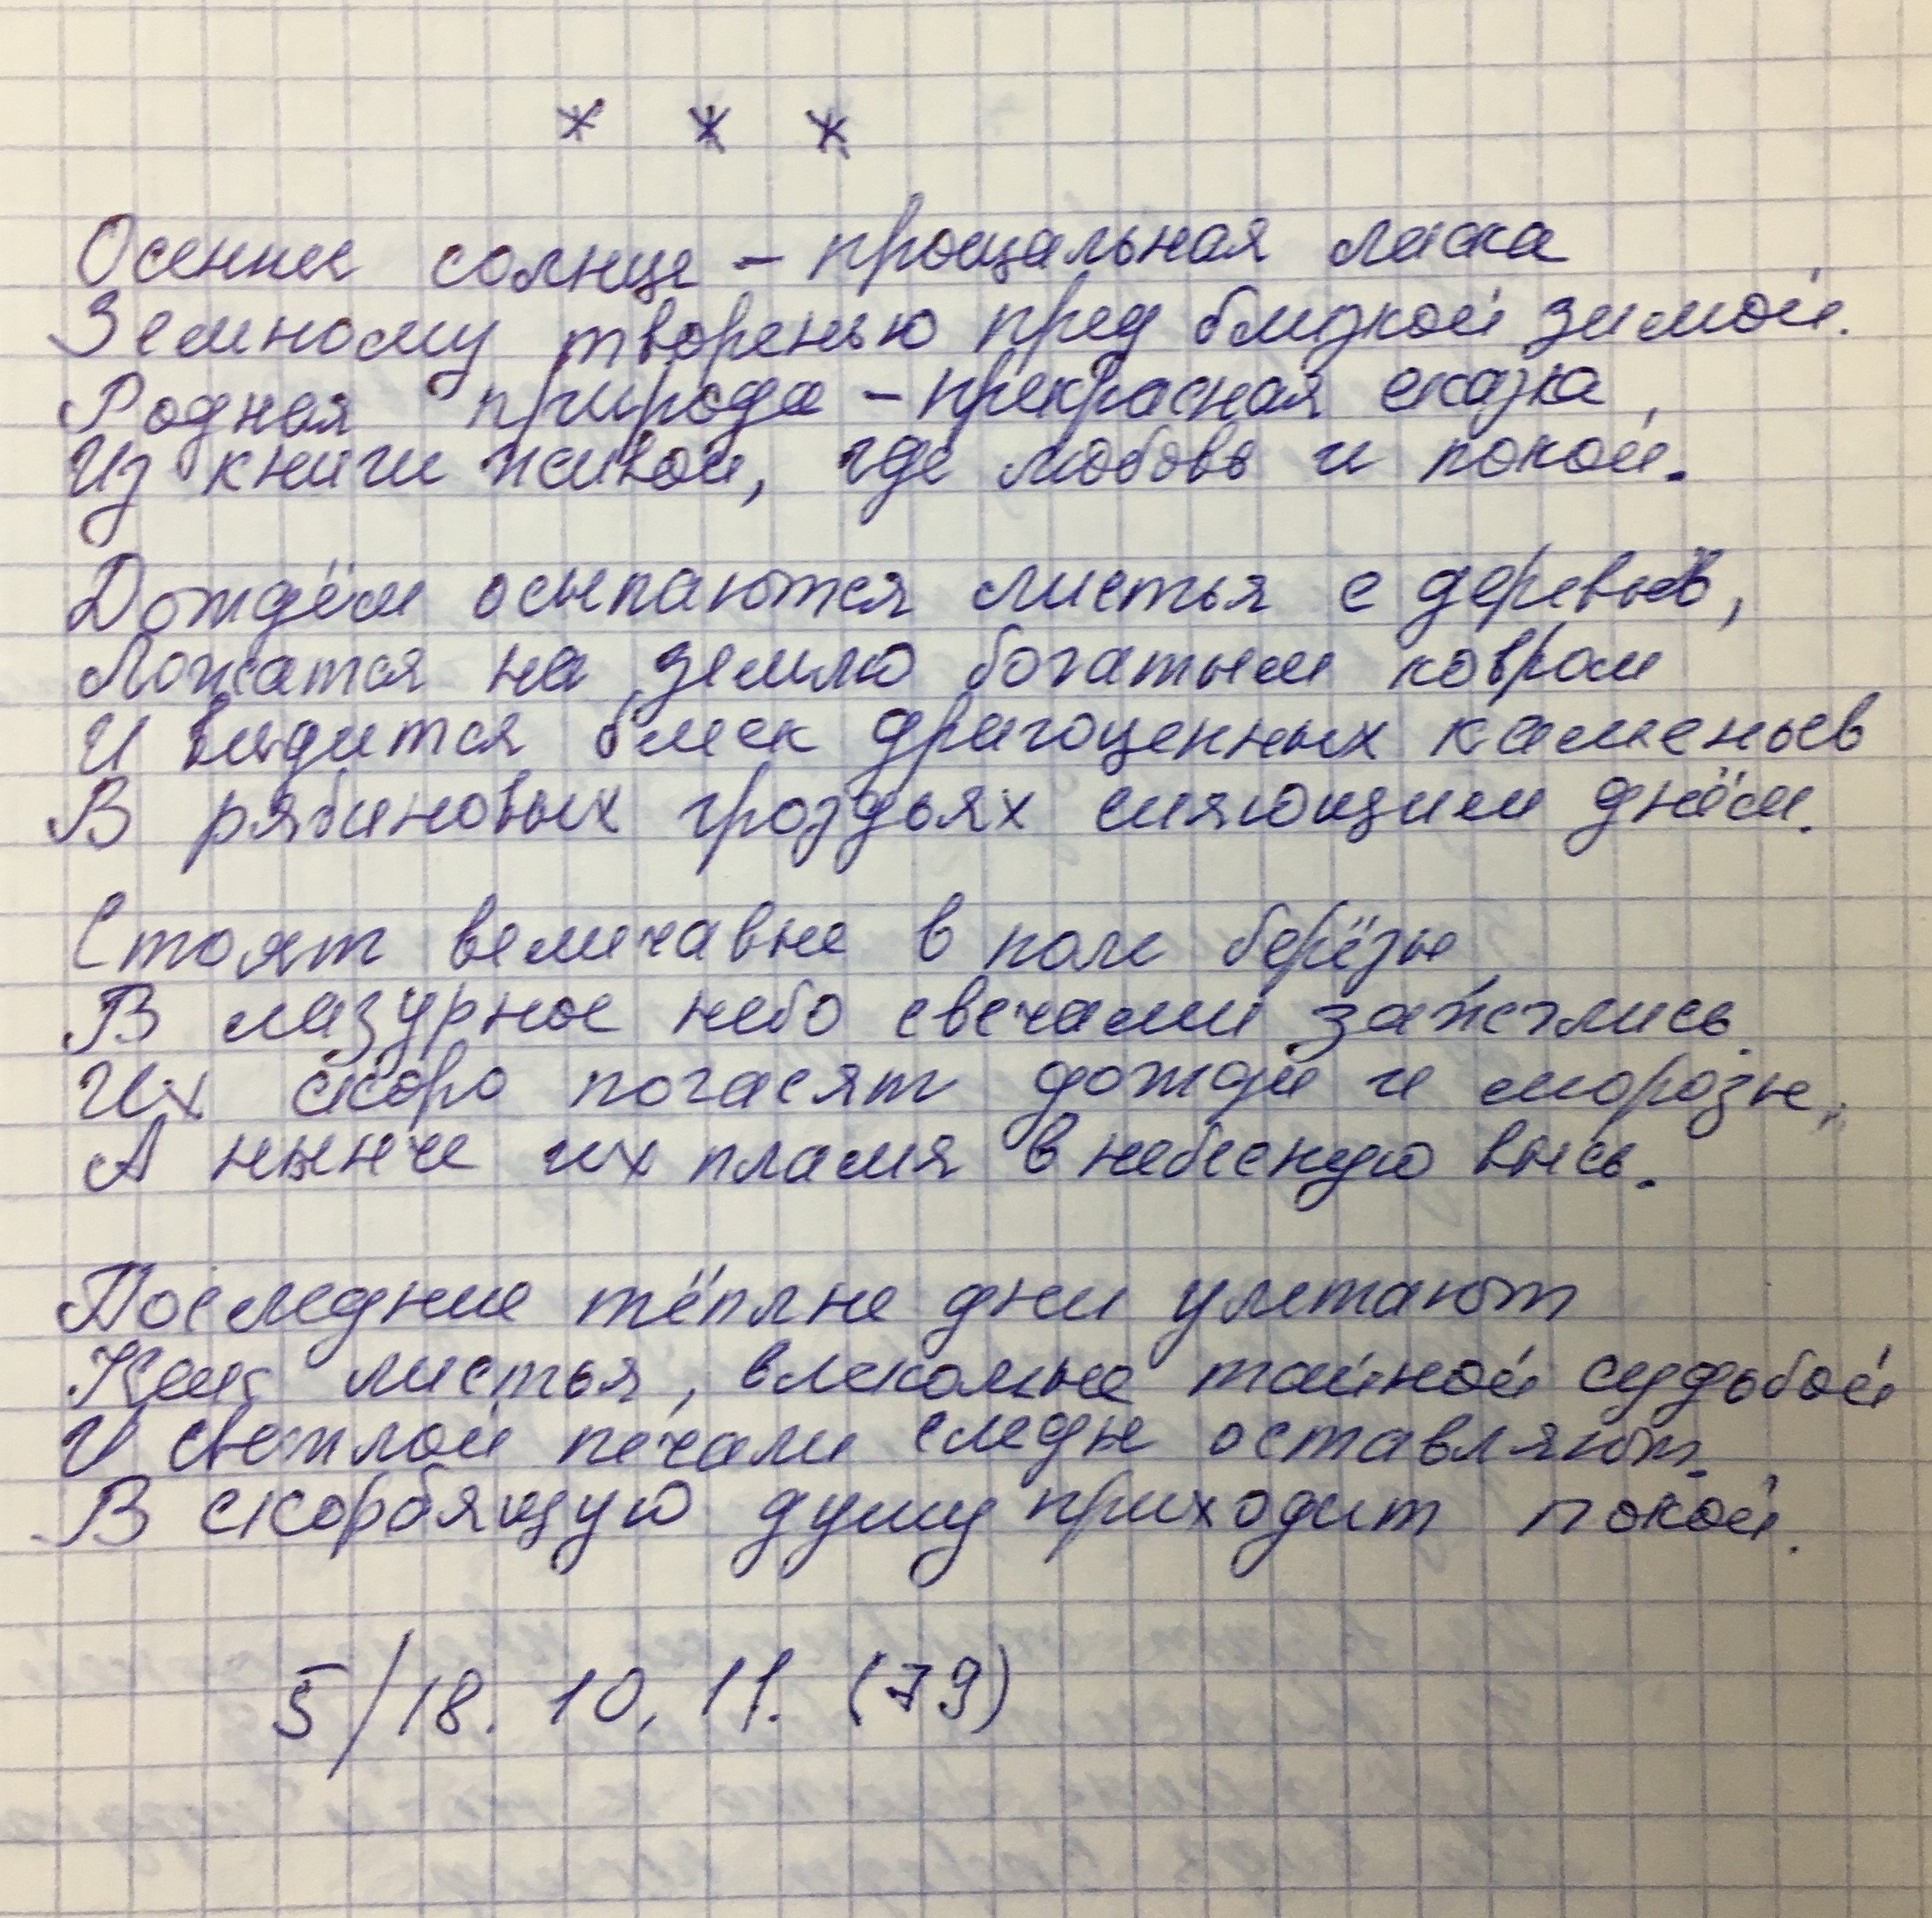 * * *
Осеннее солнце – прощальная ласка
Земному творенью пред близкой зимой.
Родная природа – прекрасная сказка,
Из книги живой, где любовь и покой.
Дождём осыпаются листья с деревьев,
Ложатся на землю богатым ковром
И видится блеск драгоценных каменьев
В рябиновых гроздьях сияющим днём.
Стоят величавые в поле берёзы
В лазурное небо свечами зажглись.
Их скоро погасят дожди и морозы,
А нынче их пламя в небесную высь.
Последние тёплые дни улетают
Как листья, влекомые тайной судьбой
И светлой печали следы оставляют.
В скорбящую душу приходит покой.
5/18. 10. 11. (79)